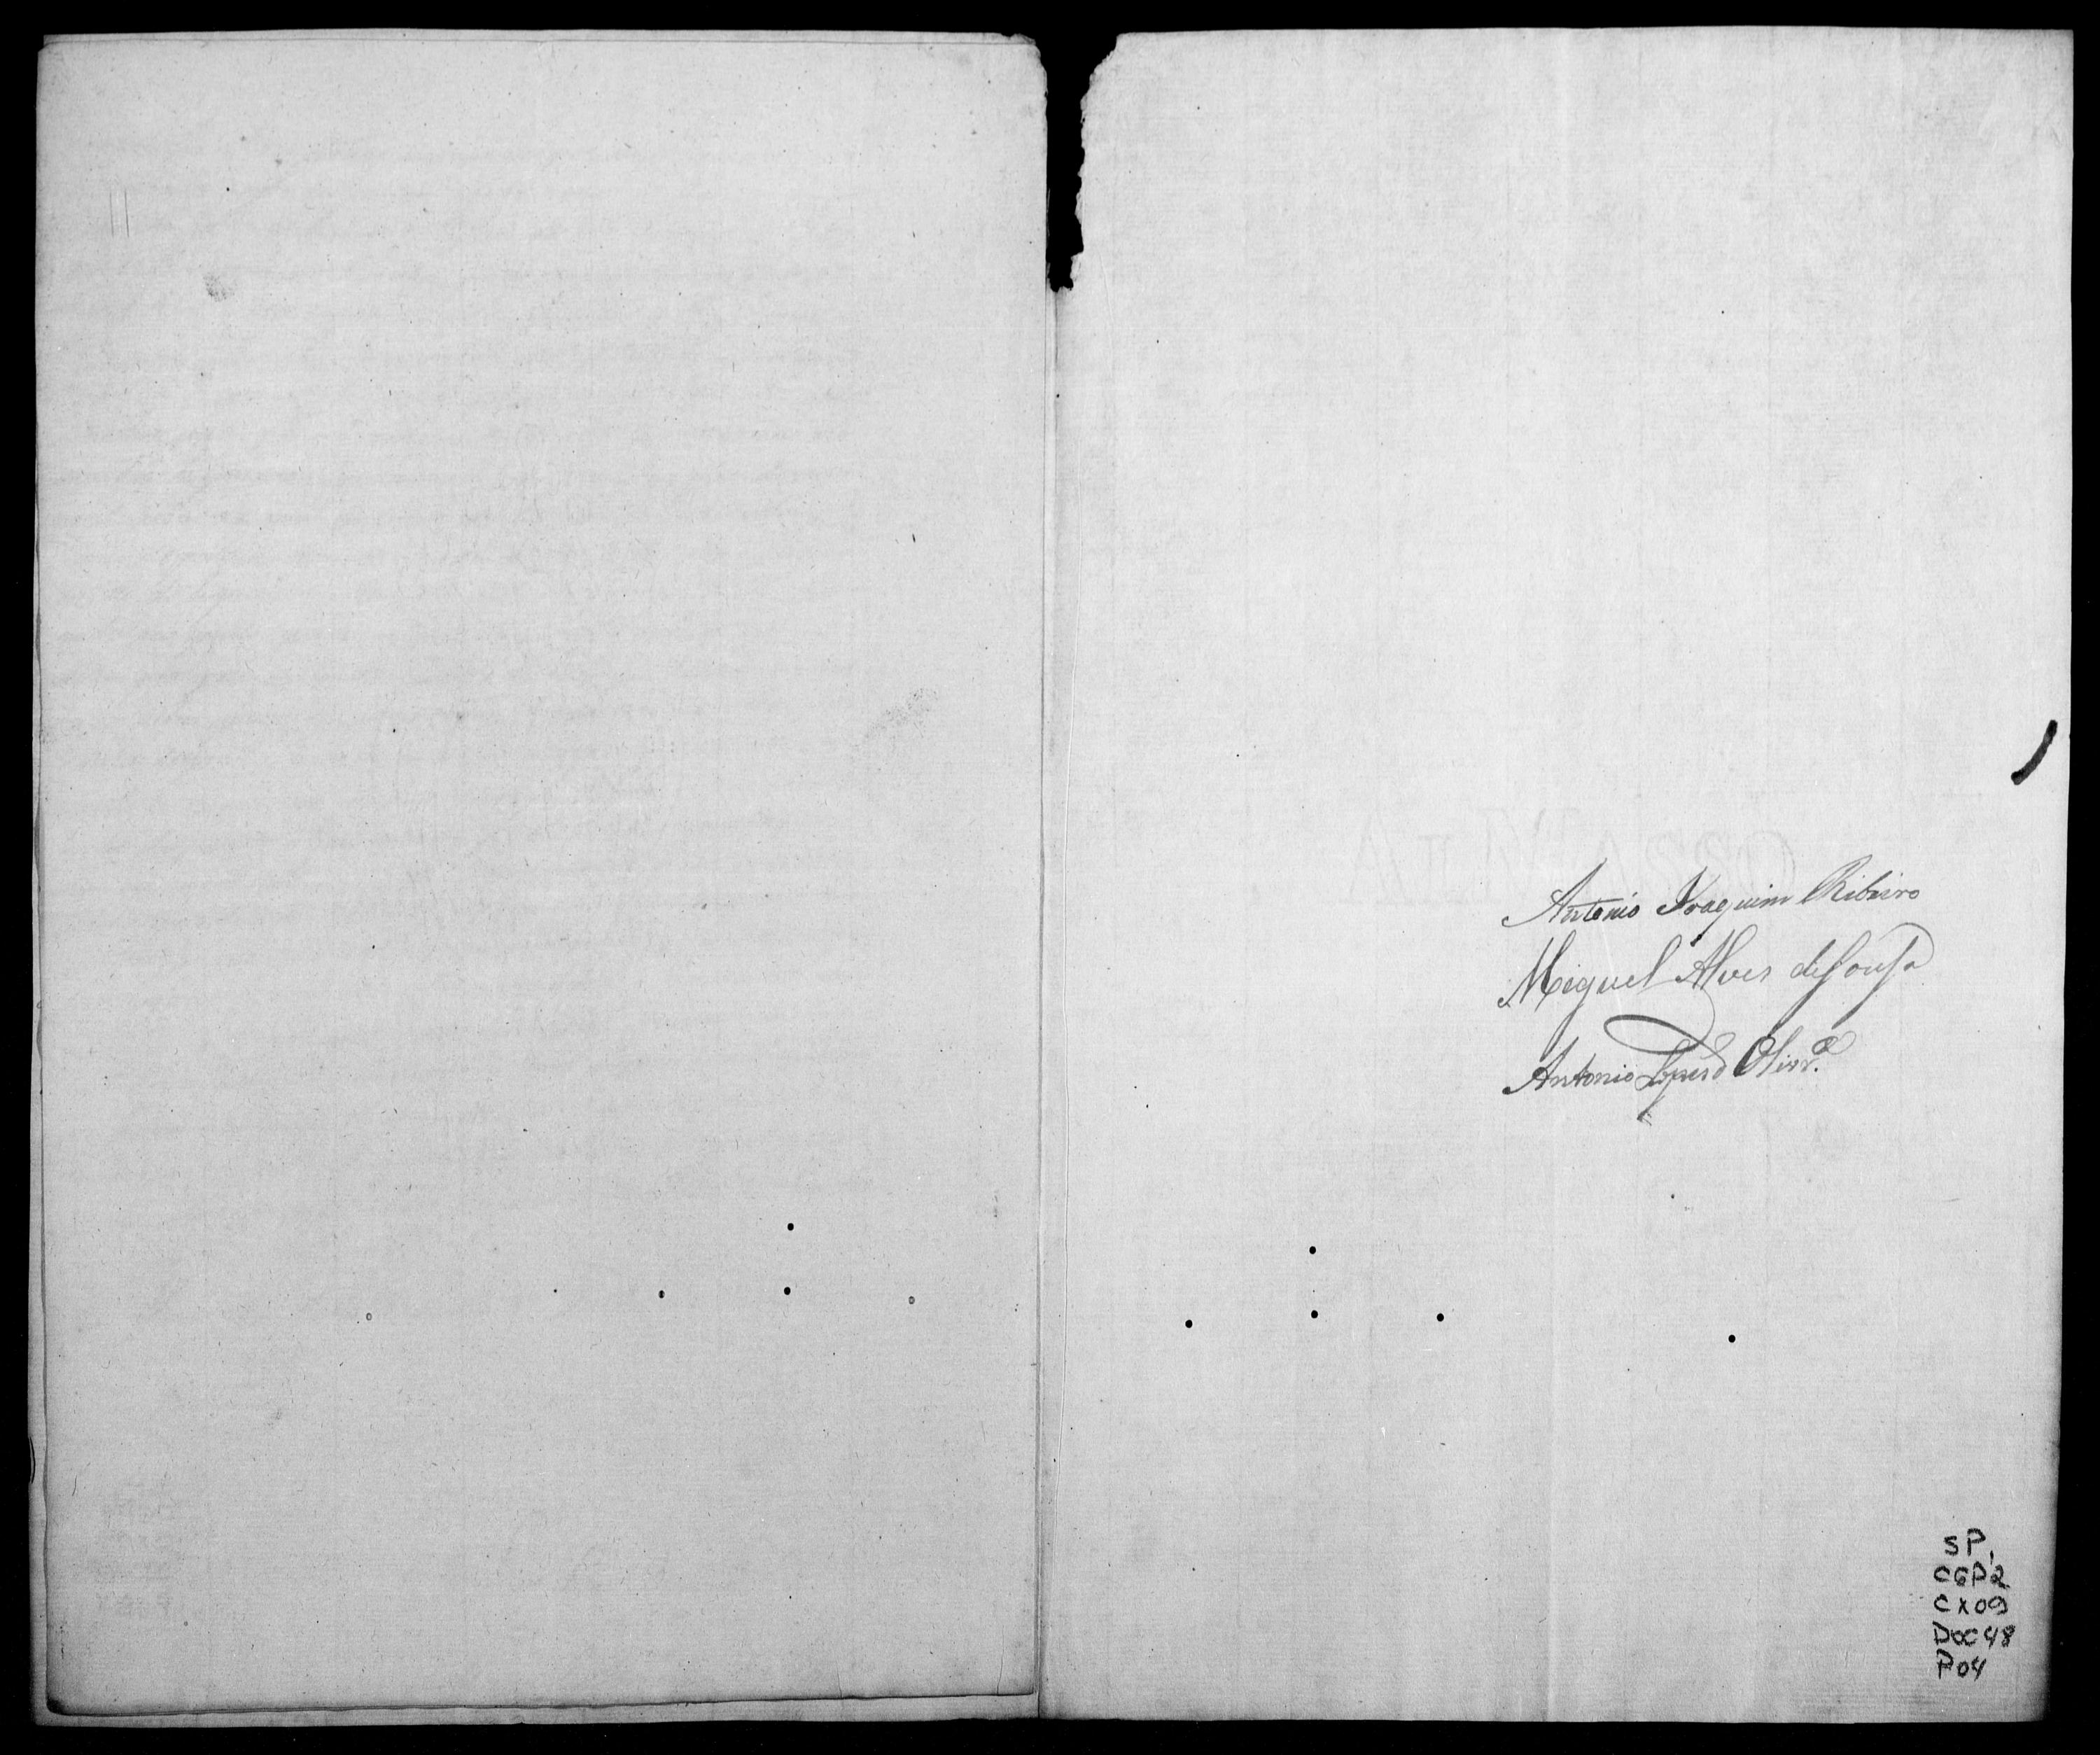 Antonio Joaquim Ribeiro
Miguel Alves de Sousa
Antonio Lopes d Olivr.ª
SP.
CGP2
CX09
Doc 48
P04